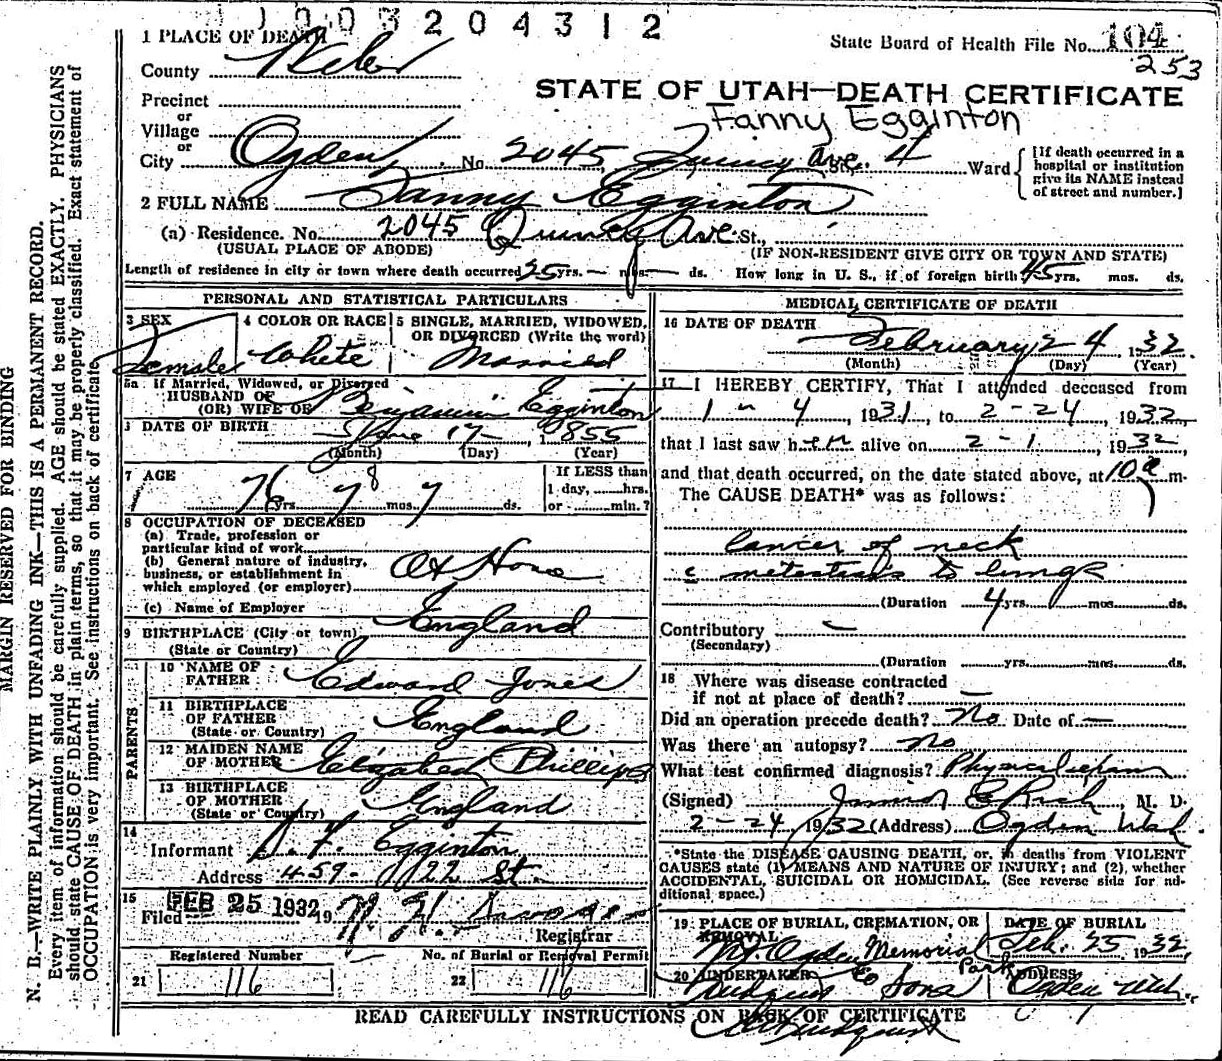 1003204312
1 PLACE OF DEATH
State Board of Health File No. 104
253
County Weber
STATE OF UTAH—DEATH CERTIFICATE
Precinct
or
Village
Fanny Egginton
or
City Ogden No. 2045 Quincy Ave. 4 Ward
[If death occurred in a
hospital or institution
give its NAME instead
of street and number.]
2 FULL NAME Fanny Egginton
(a) Residence. No. 2045 Quincy Ave St.,
(USUAL PLACE OF ABODE) (IF NON-RESIDENT GIVE CITY OR TOWN AND STATE)
Length of residence in city or town where death occurred 25 yrs. — mos. — ds. How long in U. S., if of foreign birth 45 yrs. mos. ds.
PERSONAL AND STATISTICAL PARTICULARS
3 SEX
Female
4 COLOR OR RACE
White
5 SINGLE, MARRIED, WIDOWED,
OR DIVORCED (Write the word)
Married
5a If Married, Widowed, or Divorced
HUSBAND OF
(OR) WIFE OF Benjamin Egginton
DATE OF BIRTH June 17 1855
(Month) (Day) (Year)
7 AGE
76 yrs 8 mos 7 ds.
If LESS than
1 day, ......hrs.
or ......min.?
8 OCCUPATION OF DECEASED
(a) Trade, profession or
particular kind of work
(b) General nature of industry,
business, or establishment in
which employed (or employer) At Home
(c) Name of Employer
9 BIRTHPLACE (City or town) England
(State or Country)
PARENTS
10 NAME OF
FATHER Edward Jones
11 BIRTHPLACE
OF FATHER England
(State or Country)
12 MAIDEN NAME
OF MOTHER Elizabeth Phillips
13 BIRTHPLACE
OF MOTHER England
(State or Country)
14
Informant Egginton
Address 459- 22 St.
15
Filed FEB 25 1932 19
Registrar
Registered Number No. of Burial or Removal Permit
21 116 22 116
MEDICAL CERTIFICATE OF DEATH
16 DATE OF DEATH
February 24 1932.
(Month) (Day) (Year)
17 I HEREBY CERTIFY, That I attended deceased from
1 - 4, 1931, to 2-24, 1932
that I last saw her alive on 2-1, 1932,
and that death occurred, on the date stated above, at 10 a m.
The CAUSE DEATH* was as follows:
Cancer of neck
c metastasis to lungs
(Duration 4 yrs. mos. ds.
Contributory —
(Secondary)
(Duration yrs. mos. ds.
18 Where was disease contracted
if not at place of death? —
Did an operation precede death? No Date of —
Was there an autopsy? no
What test confirmed diagnosis? Physical exam
(Signed) E Rich, M. D.
2-24, 1932 (Address) Ogden Utah.
*State the DISEASE CAUSING DEATH, or, in deaths from VIOLENT
CAUSES state (1) MEANS AND NATURE OF INJURY; and (2), whether
ACCIDENTAL, SUICIDAL OR HOMICIDAL. (See reverse side for ad-
ditional space.)
19 PLACE OF BURIAL, CREMATION, OR
REMOVAL
Mt. Ogden Memorial
Park
DATE OF BURIAL
Feb. 25 1932
20 UNDERTAKER
Lindquist & Sons
ADDRESS
Ogden Utah.
READ CAREFULLY INSTRUCTIONS ON BACK OF CERTIFICATE
Lindquist
MARGIN RESERVED FOR BINDING
N. B.—WRITE PLAINLY WITH UNFADING INK—THIS IS A PERMANENT RECORD.
Every item of information should be carefully supplied. AGE should be stated EXACTLY. PHYSICIANS
should state CAUSE OF DEATH in plain terms, so that it may be properly classified. Exact statement of
OCCUPATION is very important. See instructions on back of certificate